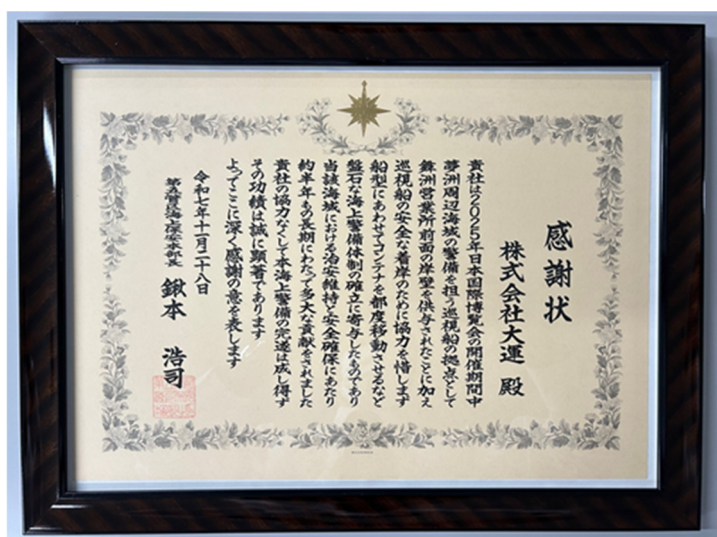 感謝状
株式会社大運 殿
貴社は2025年日本国際博覧会の開催期間中
夢洲周辺海域の警備を担う巡視船の拠点として
舞洲営業所前面の岸壁を供与されたことに加え
巡視船の安全な着岸のために協力を惜します
船型にあわせてコンテナを都度移動させるなど
盤石な海上警備体制の確立に寄与したものであり
当該海域における治安維持と安全確保にあたり
約半年もの長期にわたって多大な貢献をされました
貴社の協力なくして本海上警備の完遂は成し得ず
その功績は誠に顕著であります
よってここに深く感謝の意を表します
令和七年十一月二十八日
第五管区海上保安本部長 鍬本 浩司